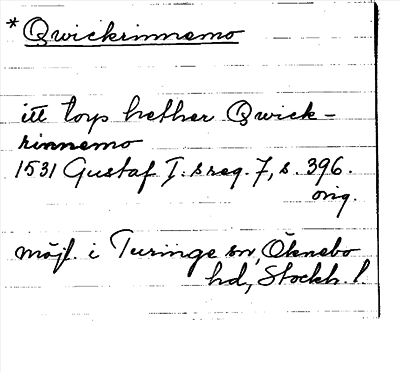 * Qwickrinnemo
itt torp hether Qwick-
rinnemo
1531 Gustaf I:s reg. 7, s. 396.
orig.
möjl. i Turinge sn, Öknebo
hd, Stockh. l.